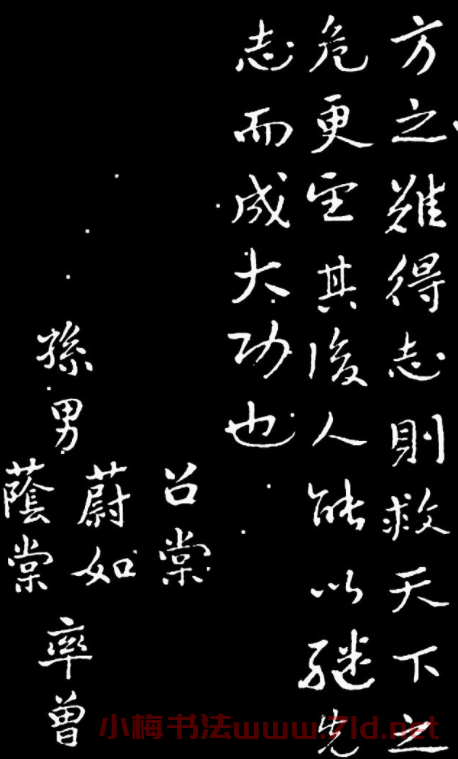 方之難得志則救天下之
危更望其後人能以継先
志而成大功也
召棠
孫男蔚如率曾
蔭棠
小梅书法www.7ld.net